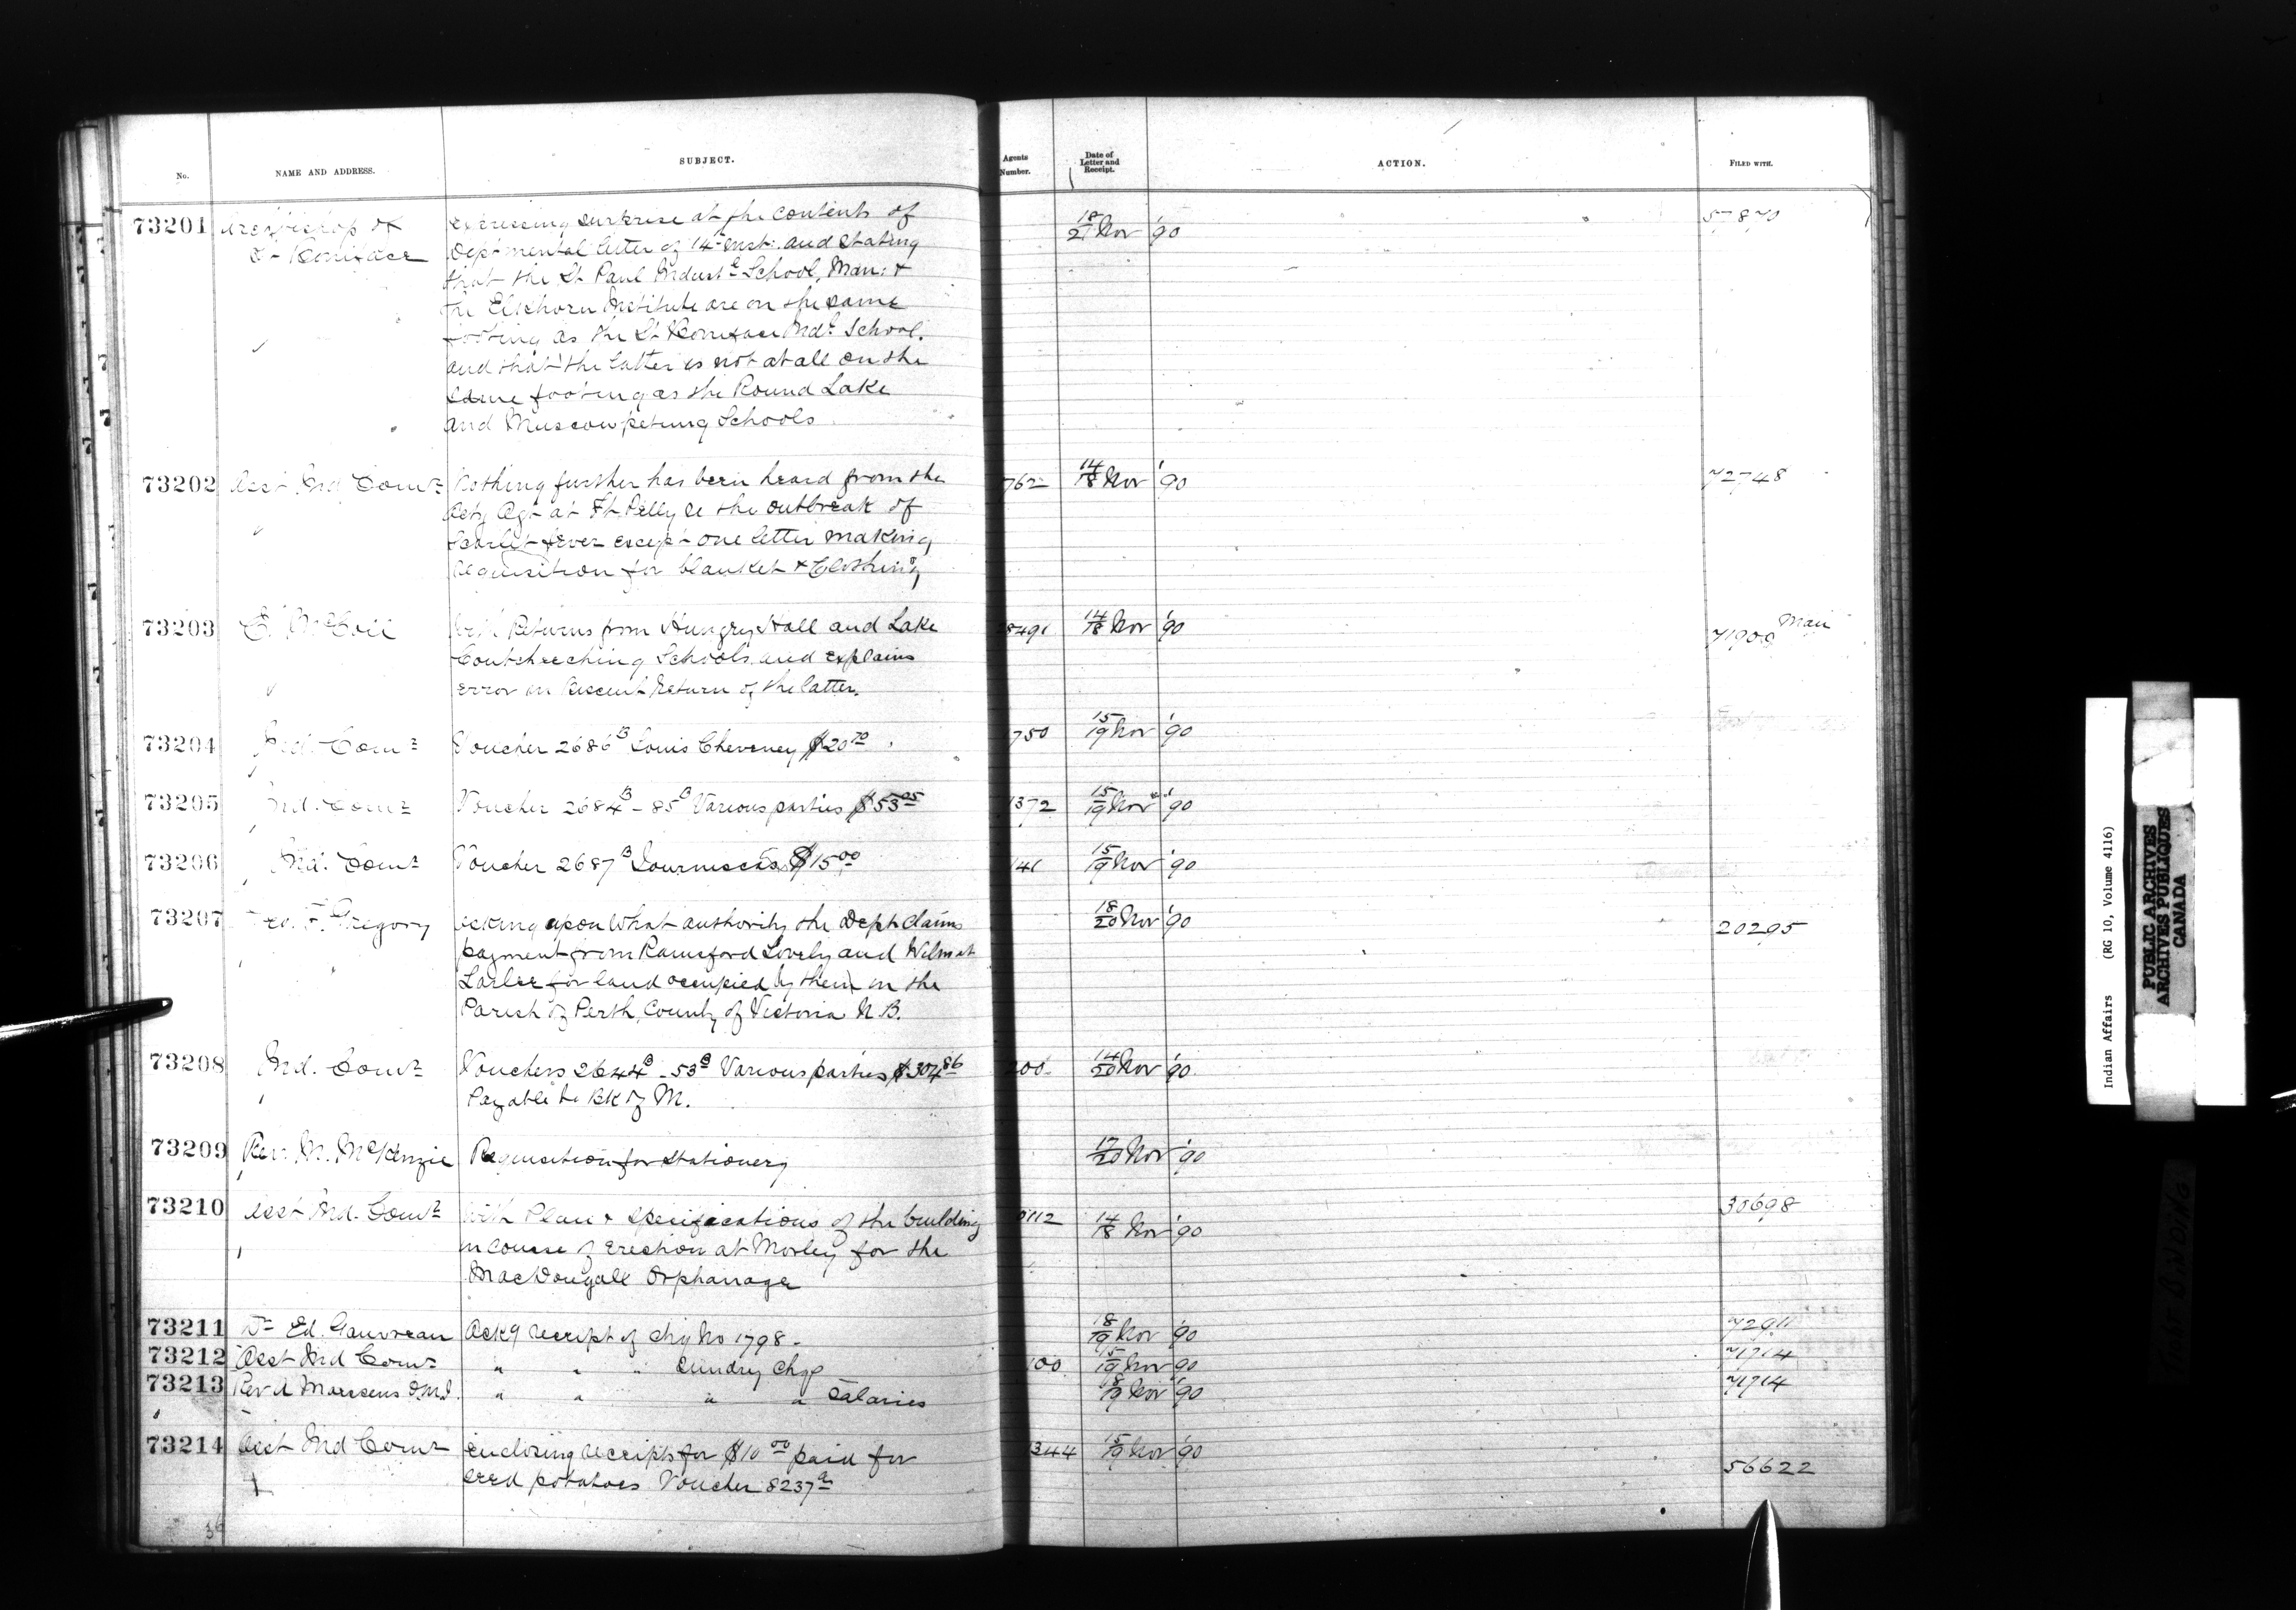 No. NAME AND ADDRESS. SUBJECT. Agents Number. Date of Letter and Receipt. ACTION. FILED WITH.
73201 Archbishop of expressing surprise at the contents of 18/21 Nov '90 57870
St Boniface Deptmental letter of 14th inst. and stating
that the St Paul Indust l School, Man: &
the Elkhorn Institute are on the same
footing as the St Boniface Indl School.
and that the latter is not at all on the
same footing as the Round Lake
and Muscowpetung Schools
73202 Asst Ind Comr Nothing further has been heard from the 762 14/18 Nov '90 72748
Actg Agt at Ft Pelly re the outbreak of
Scarlet fever except one letter making
requisition for blanket & Clothing
73203 E. McColl With Returns from Hungry Hall and Lake 8491 14/18 Nov '90 71900 Man
Coutcheeching Schools and explains
error in Recent Return of the latter.
73204 Ind. Comr Voucher 2686 B Louis Cheveney $20 70 1750 15/19 Nov '90
73205 Ind. Comr Voucher 2684 B - 85 B Various parties $53 05 1372 15/19 Nov '90
73206 Ind. Comr Voucher 2687 B $15 00 141 15/19 Nov '90
73207 F. Gregory asking upon what authority the Dept claims 18/20 Nov '90 20295
payment from Rainsford Lovely and Wilmot
Larlee for land occupied by them in the
Parish of Perth, County of Victoria N.B.
73208 Ind. Comr Vouchers 2644 B - 53 B Various parties $304 86 200 14/20 Nov '90
Payable to Bk of M.
73209 Rev. M. McKenzie Requisition for Stationery 17/20 Nov '90
73210 Asst Ind. Comr With Plan & Specifications of the building 112 14/18 Nov '90 30698
in course of erection at Morley for the
MacDougall Orphanage
73211 Dr Ed. Gauvreau Ackg receipt of chq No 1798 - 18/19 Nov '90 72911
73212 Asst Ind Comr " " " Sundry Chqs 100 15/19 Nov '90 71714
73213 Rev A O.M.I. " " " " Salaries 18/19 Nov '90 71714
73214 Asst Ind Comr enclosing receipts for $10 00 paid for 1344 15/19 Nov '90
seed potatoes Voucher 8237 a 56622
Indian Affairs (RG 10, Volume 4116)
PUBLIC ARCHIVES
ARCHIVES PUBLIQUES
CANADA